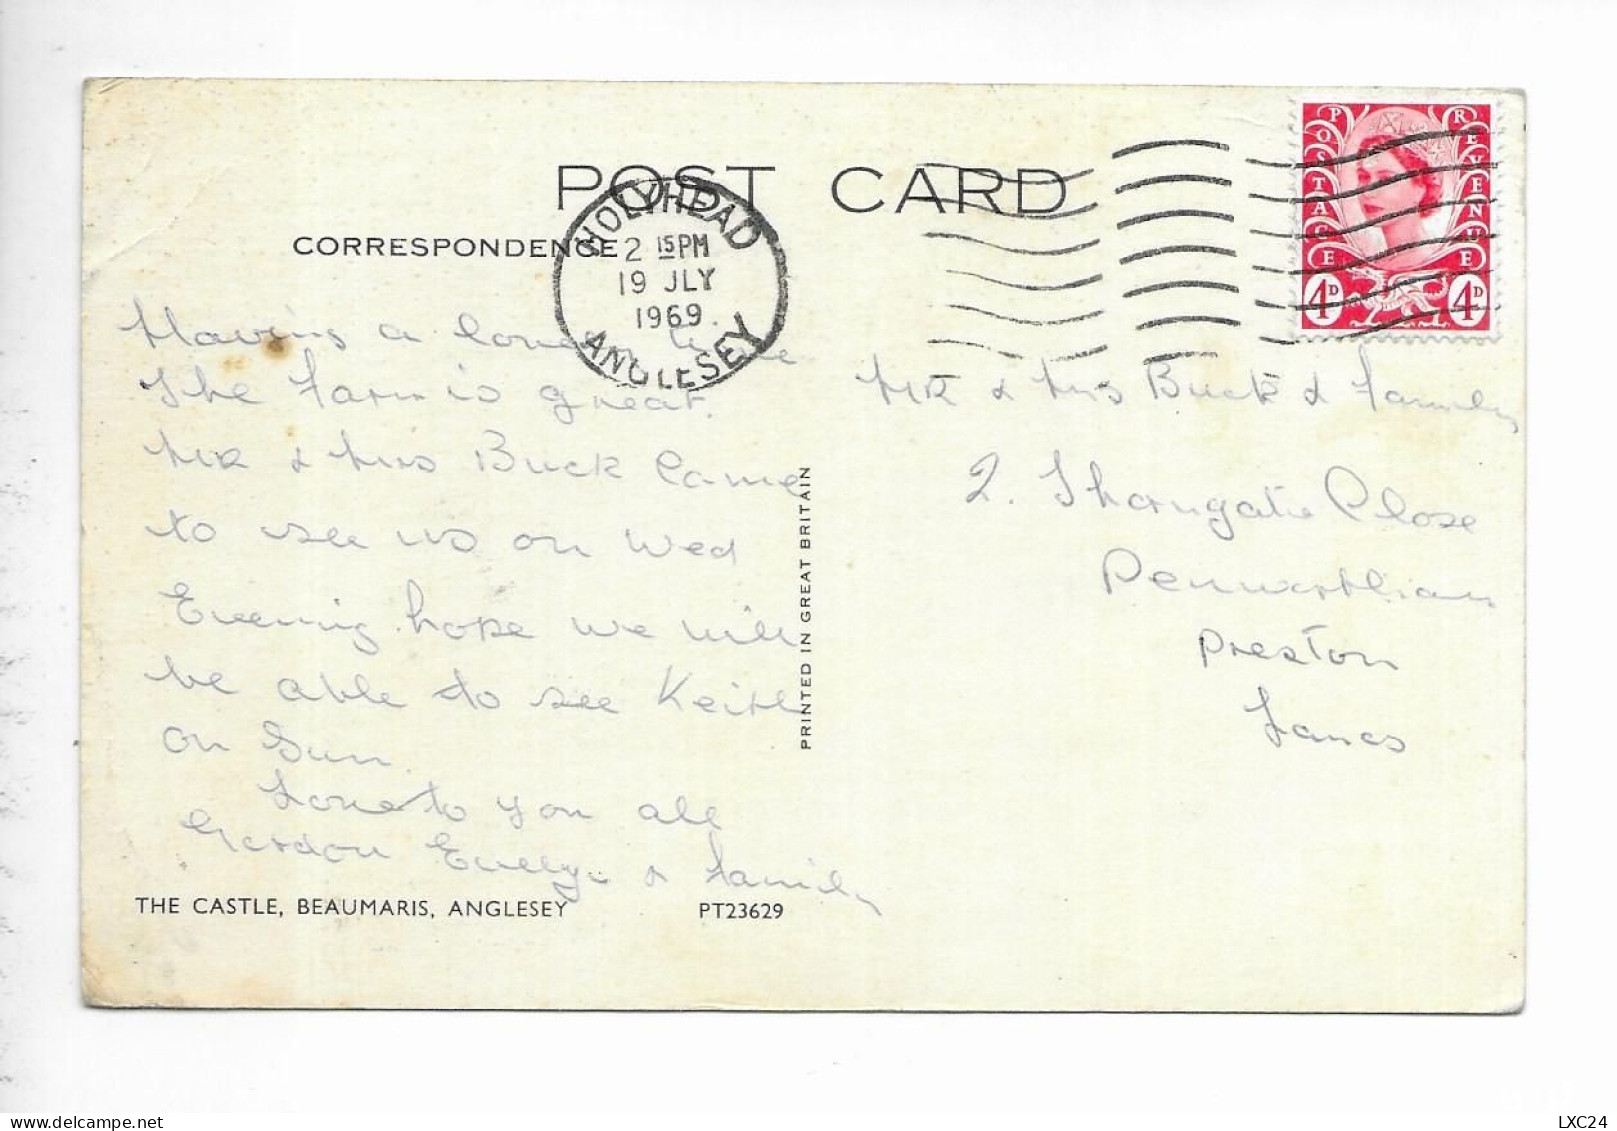 POST CARD
CORRESPONDENCE
HOLYHEAD
2 15PM
19 JLY
1969
ANGLESEY
POSTAGE REVENUE
4D 4D
Having a lovely time
The farm is great.
MR & Mrs Buck Came
to see us on Wed
Evening. hope we will
be able to see Keith
on Sun.
Love to you all
Gordon Evelyn & family
THE CASTLE, BEAUMARIS, ANGLESEY PT23629
PRINTED IN GREAT BRITAIN
MR & Mrs Buck & family
2. Thorngate Close
Penwortham
Preston
Lancs
LXC24